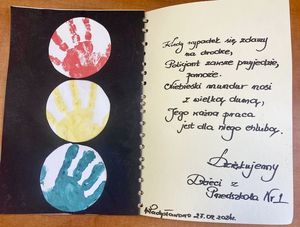 Kiedy wypadek się zdarzy
na drodze,
Policjant zawsze przyjedzie,
pomoże.
Niebieski mundur nosi
z wielką dumą,
Jego ważna praca
jest dla niego chlubą.
Dziękujemy
Dzieci z
Przedszkola Nr 1
Władysławowo 27.07.2021r.